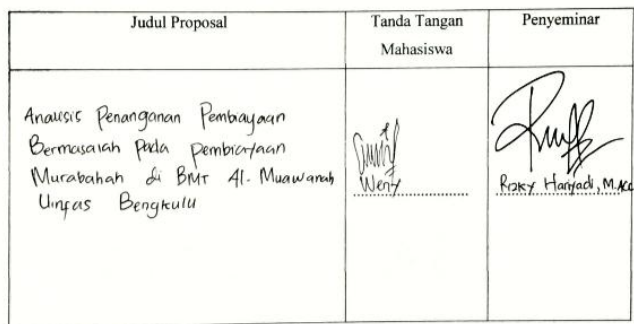 Judul Proposal
Tanda Tangan
Mahasiswa
Penyeminar
Analisis Penanganan Pembiayaan
Bermasalah Pada Pembiayaan
Murabahah di BMT Al-Muawanah
Uinfas Bengkulu
Weny
Rizky Hariyadi, M.Acc